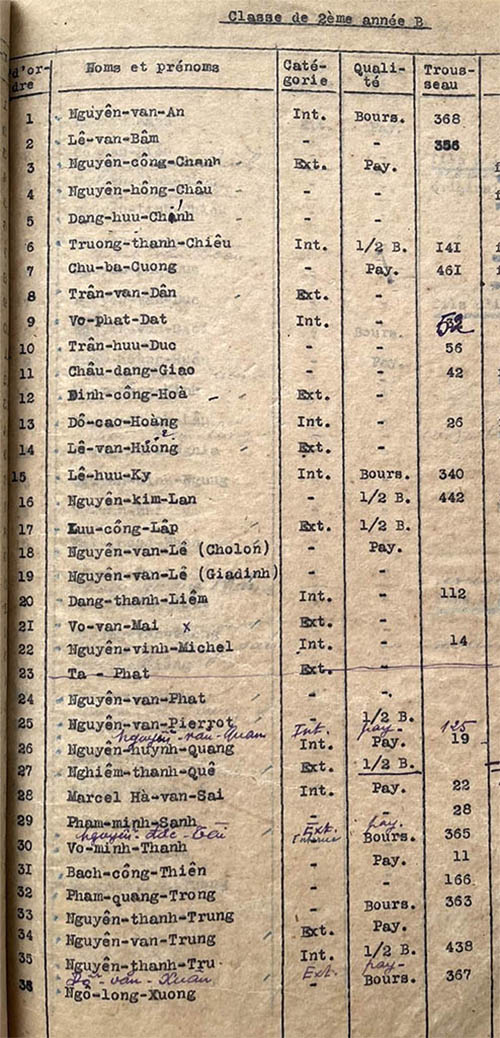 Classe de 2ème année B
d'or-dre Noms et prénoms Caté-gorie Quali-té Trous-seau
1 Nguyên-van-An Int. Bours. 368
2 Lê-van-Bâm - - 356
3 Nguyên-công-Chanh Ext. Pay.
4 Nguyên-hông-Châu - -
5 Dang-huu-Chánh - -
6 Truong-thanh-Chiêu Int. 1/2 B. 141
7 Chu-ba-Cuong - Pay. 461
8 Trân-van-Dân Ext. -
9 Vo-phat-Dat Int. - 52
10 Trân-huu-Duc - - 56
11 Châu-dang-Giao - - 42
12 Dinh-công-Hoà - Ext. -
13 Dô-cao-Hoàng Int. - 26
14 Lê-van-Hương Ext. -
15 Lê-huu-Ky Int. Bours. 340
16 Nguyên-kim-Lan - 1/2 B. 442
17 Luu-công-Lâp Ext. 1/2 B.
18 Nguyên-van-Lê (Cholon) - Pay.
19 Nguyên-van-Lê (Giadinh) - -
20 Dang-thanh-Liêm Int. - 112
21 Vo-van-Mai x Ext. -
22 Nguyên-vinh-Michel Int. - 14
23 Ta - Phat Ext. -
24 Nguyên-van-Phat - -
25 Nguyên-van-Pierrot - 1/2 B.
Nguyễn-văn-Quan Int. pay. 125
26 Nguyên-huynh-Quang Int. Pay. 19
27 Nghiêm-thanh-Quê Ext. 1/2 B.
28 Marcel Hà-van-Sai Int. Pay. 22
29 Pham-minh-Sanh - - 28
Nguyễn-đắc-Tài Ext. pay.
30 Vo-minh-Thanh Interne Bours. 365
31 Bach-công-Thiên - Pay. 11
32 Pham-quang-Trong - - 166
33 Nguyên-thanh-Trung - Bours. 363
34 Nguyên-van-Trung Ext. Pay.
35 Nguyên-thanh-Tru Int. 1/2 B. 438
Đỗ-văn-Xuân Ext. pay-
36 Ngô-long-Xuong - Bours. 367